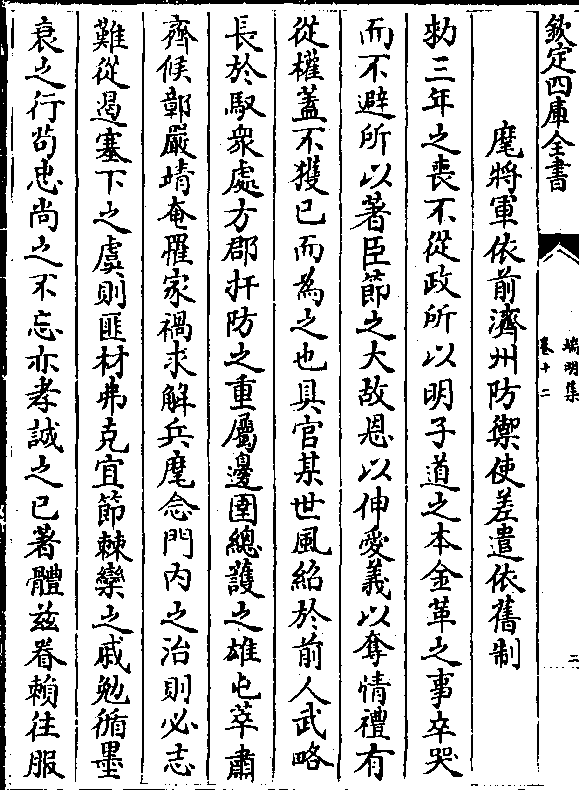 欽定四庫全書
端明集
卷十二
二
麾將軍依前濟州防禦使差遣依舊制
勑三年之喪不從政所以明子道之本金革之事卒哭
而不避所以著臣節之大故恩以伸愛義以奪情禮有
從權蓋不獲已而為之也具官某世風紹於前人武略
長於馭衆處方郡扞防之重屬邊圉總護之雄屯萃肅
齊候鄣嚴靖奄罹家禍求解兵麾念門内之治則必志
難從遏塞下之虞則匪材弗克宜節棘欒之戚勉循墨
衰之行茍忠尚之不忘亦孝誠之已著體兹眷賴往服